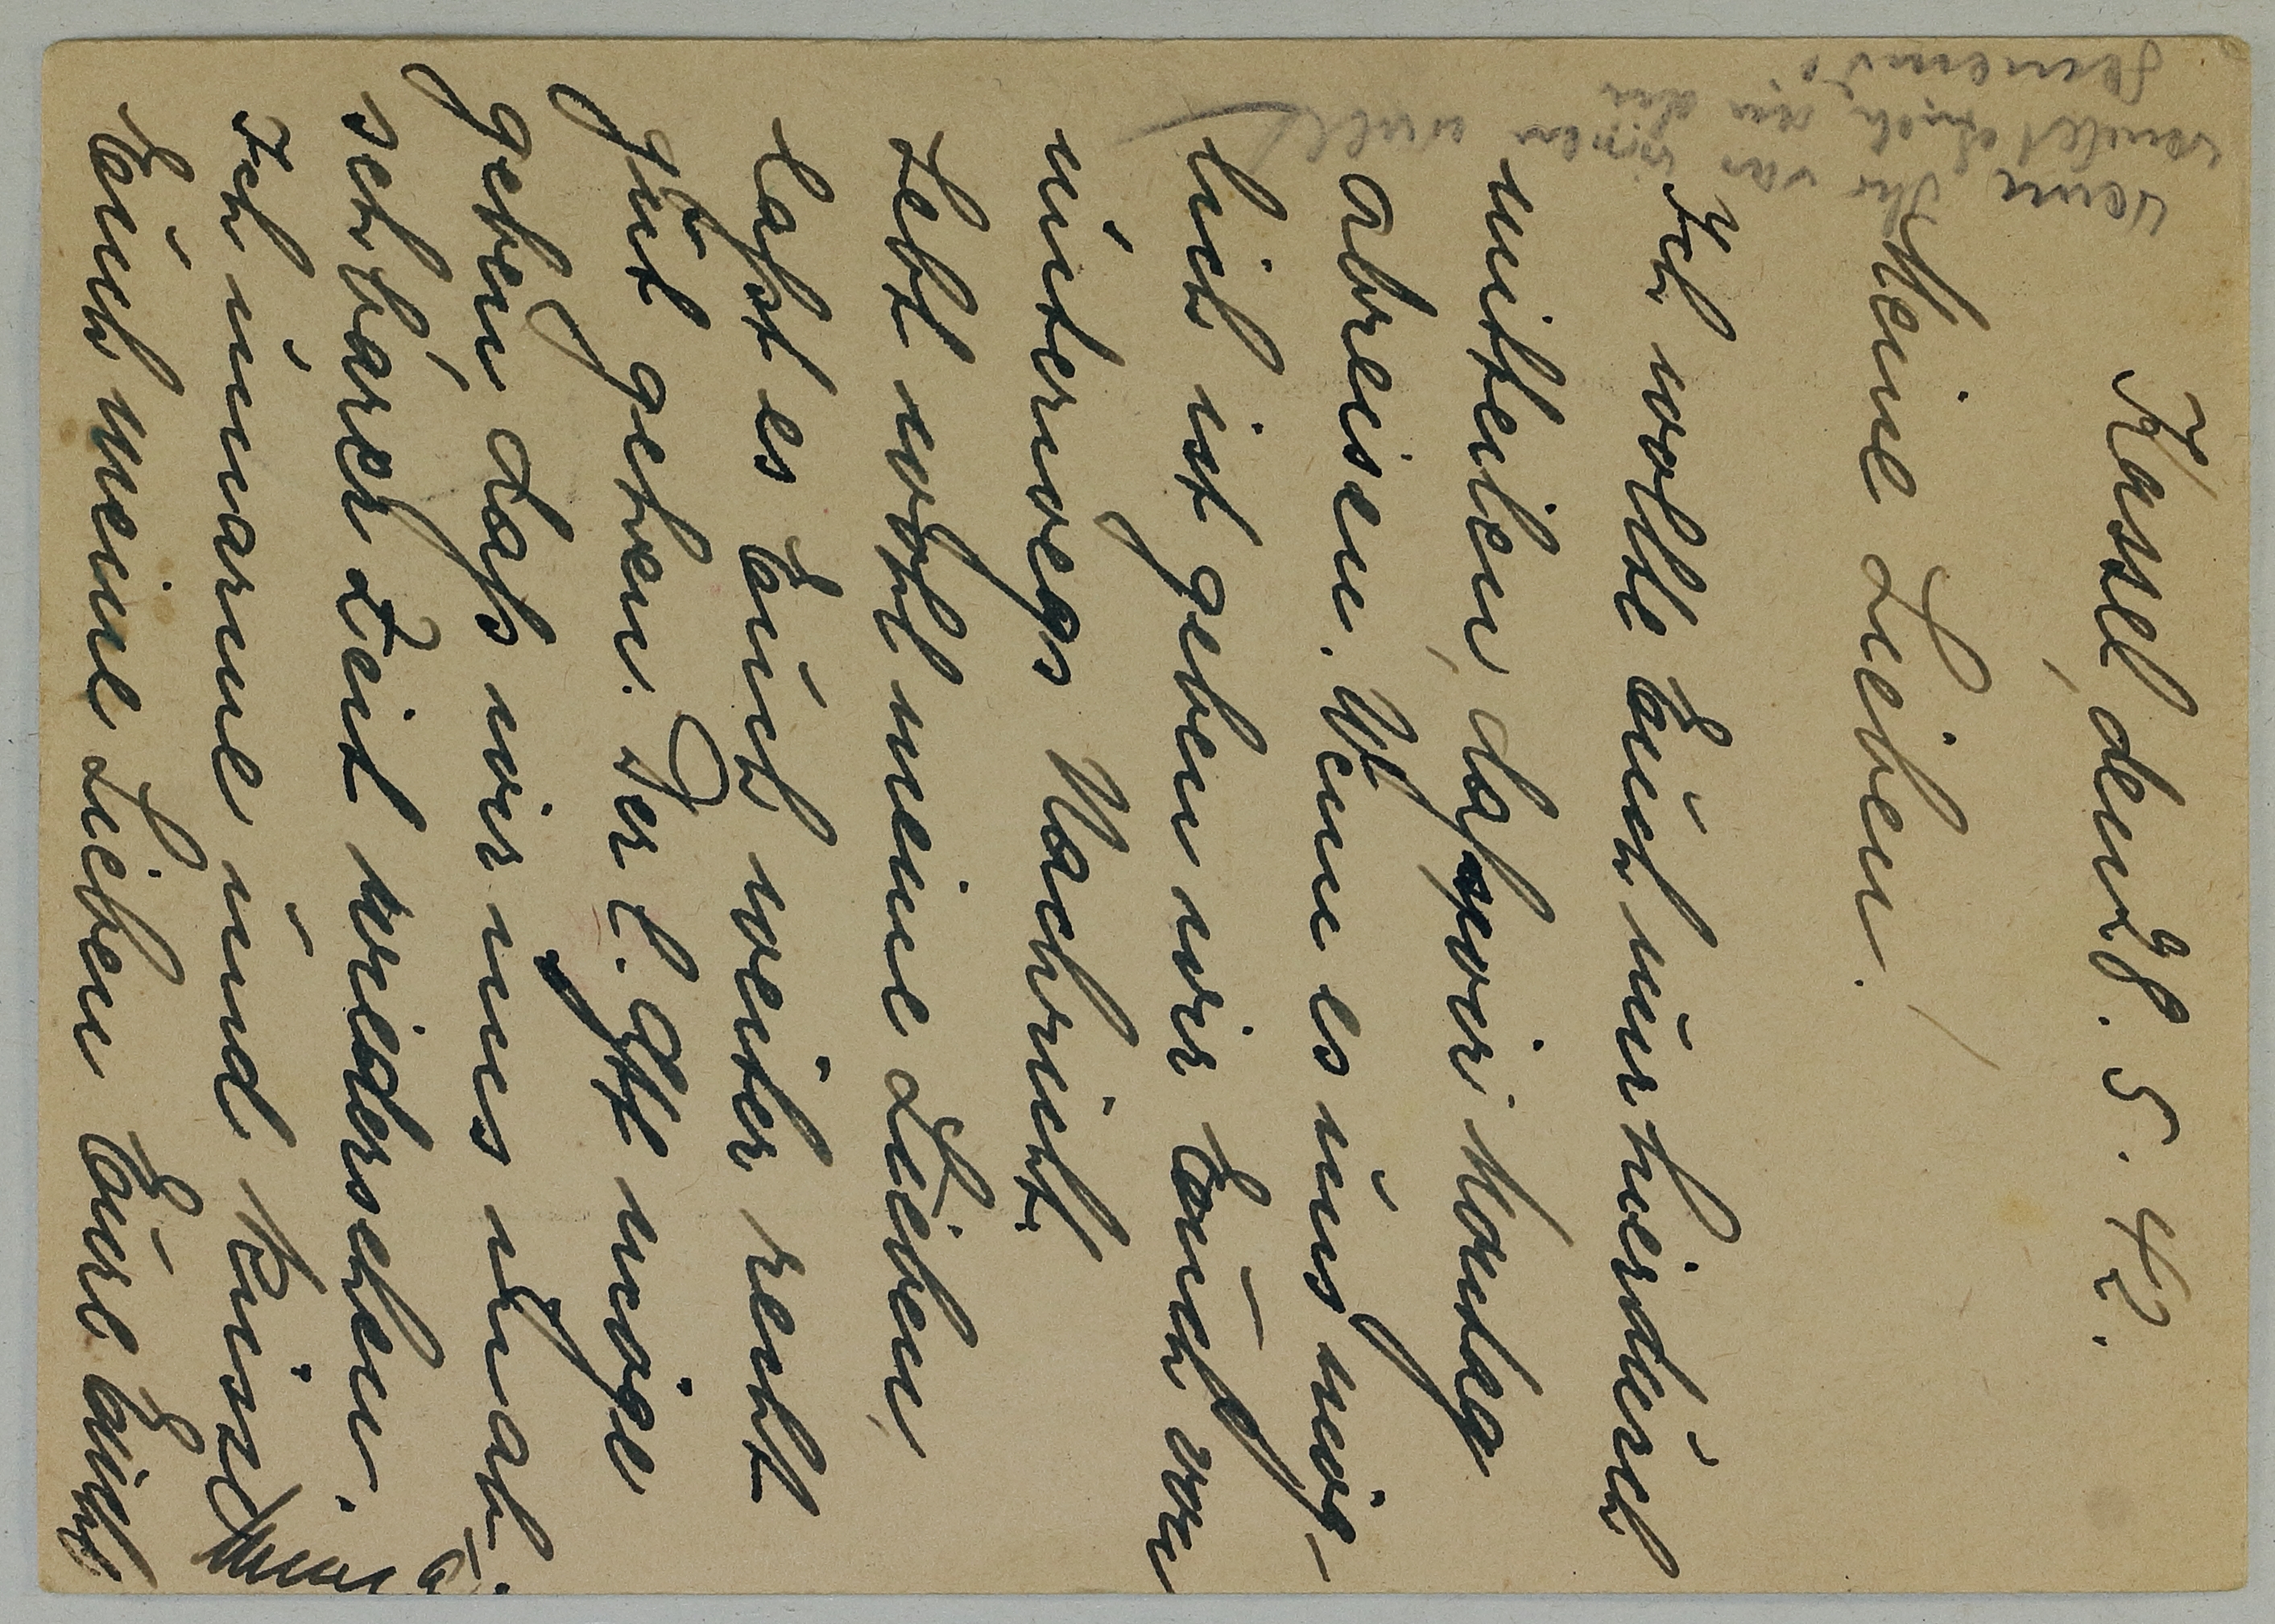 Kassel, den 28. 5. 42.
Meine Lieben!
Ich wollte Euch nur hierdurch
mitteilen, daß wir Montag
abreisen. Wenn es uns mög-
lich ist geben wir Euch von
unterwegs Nachricht.
Lebt wohl meine Lieben,
laßt es Euch weiter recht
gut gehen. Der l. Gtt möge
geben daß wir uns in ab-
sehbarer Zeit wiedersehen.
Ich umarme und küsse
Euch meine Lieben Eure
wenn Ihr von mir
wendet Euch an die